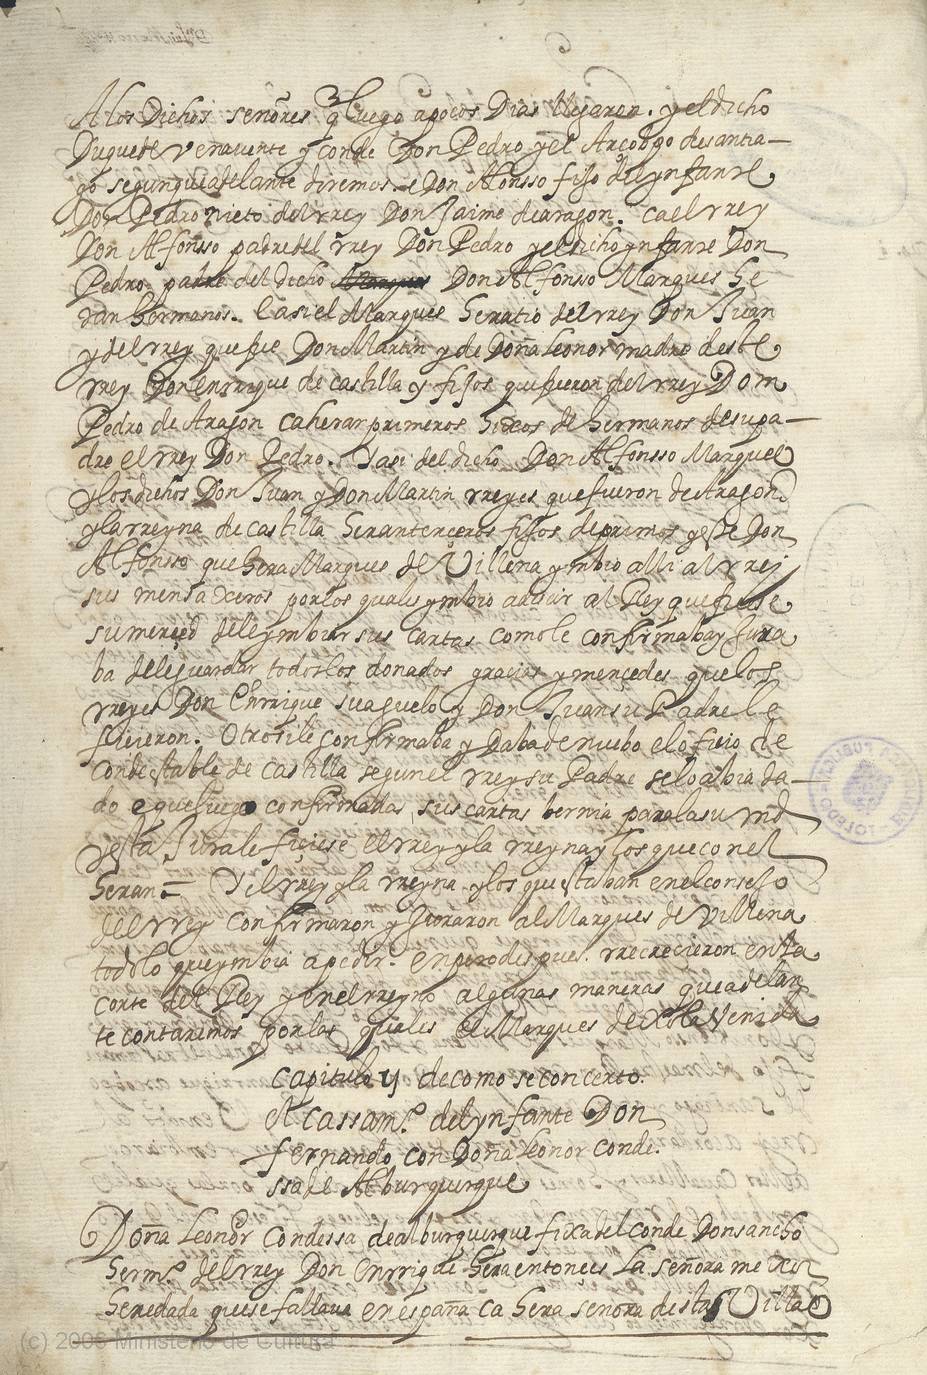 A los Dichos señores q̃ luego apocos Dias llegaron. y el dicho
Duque de Venavente y conde Don Pedro y el Arcobpo de santia-
go segun que adelante diremos. e Don Alonsso fijo del ynfante
Don Pedro nieto del rrey Don Jaime de aragon. ca el rrey
Don Alfonso padre del rrey Don Pedro y el dicho ynfante Don
Pedro padre del decho Don Alfonsso Marques he
dan hermanos. E asi el Marques hera tio del rrey Don Juan
y del rrey que fue Don Martin y de Doña leonor madre deste
rrey Don enrrique de castilla y fijos que fueron del rrey Dom
Pedro de Aragon ca heran primeros de hermanos de su pa-
dre el rrey Don Pedro. Y asi del dicho Don Alfonsso Marques
y los dichos Don Juan y Don Martin rreyes que fueron de Aragon
y la rreyna de castilla heran terceros fijos de primos y este Don
Alfonsso que hera Marques de Villena ymbio alli al rrey
sus mensaxeros por los quales ymbio a decir al Rey que fuese
su merced de le ymbiar sus cartas como le confirmaba y jura
ba de le guardar todos los donados gracias y merçedes que los
rreyes Don Enrrique su aguelo y Don Juan su Padre le
ficieron. Otrosi le confirmaba y Daba de nuebo el oficio de
Condestable de Castilla segun el rrey su Padre se lo abia da-
do e que luego confirmadas sus cartas bernia para la su md
y esta Jura le fiçiese el rrey y la rreyna y los que con el
heran = Y el rrey y la rreyna y los que estaban en el consejo
del rrey confirmaron y Juraron al Marques de Villena
todo lo que ymbia a pedir. enpero despues rrecrecieron en la
corte del Rey y en el rreyno algunas maneras que adelan
te contaremos por las quales el Marques dexo la venida
Capitulo y de como se concerto.
el cassam.º del ynfante Don
fernando con Doña leonor conde.
ssa de Alburquerque
Doña leonor condessa de alburquerque fixa del conde Don sancho
herm.º del rrey Don enrrique hera entonces la señora mexor
heredada que se fallava en españa ca hera señora destas Villas
(c) 2006 Ministerio de Cultura